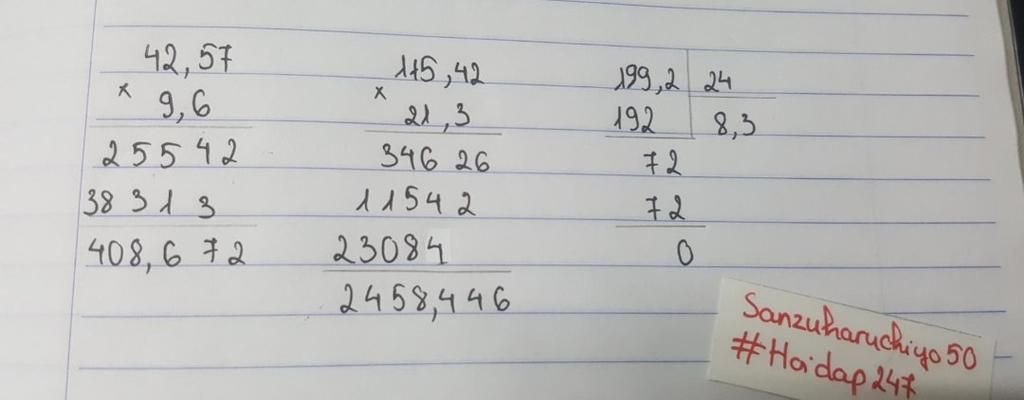 42,57
×
9,6
25542
38313
408,672
115,42
×
21,3
34626
11542
23084
2458,446
199,2 24
192 8,3
72
72
0
Sanzuharuchiyo50
#Hoidap247